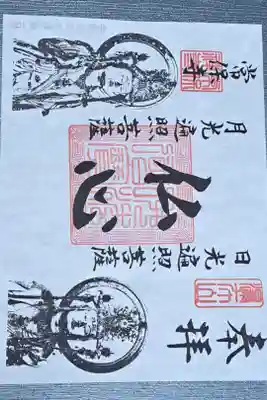 奉拝
瀧本山
日光遍照菩薩
仏心
月光遍照菩薩
常保寺